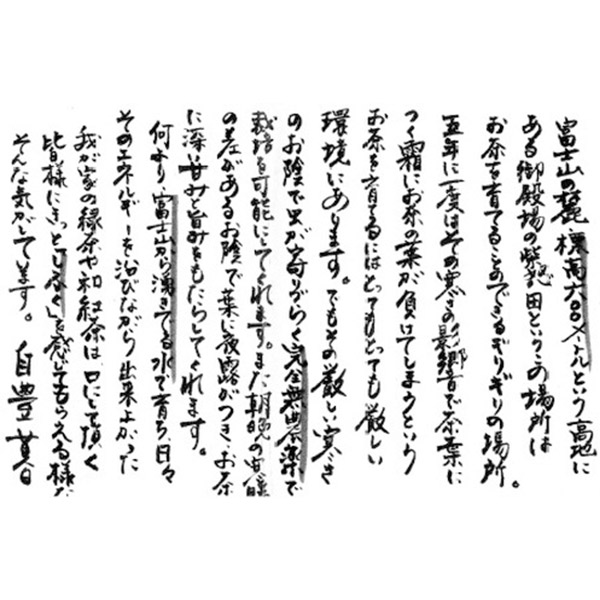 富士山の麓 標高六〇〇メートルという高地に
ある御殿場の柴怒田というこの場所は
お茶を育てることのできるぎりぎりの場所。
五年に一度はその寒さの影響で茶葉に
つく霜にお茶の葉が負けてしまうという
お茶を育てるにはとってもとっても厳しい
環境にあります。でもその厳しい寒さ
のお陰で虫が寄りづらく完全無農薬で
栽培を可能にしてくれます。また朝晩の寒暖
の差があるお陰で葉に夜露がつき、お茶
に深い甘みと旨みをもたらしてくれます。
何より、富士山から湧きでる水で育ち、日々
そのエネルギーを浴びながら出来上がった
我が家の緑茶や和紅茶は、口にして頂く
皆様にきっと「しふく」を感じてもらえる様な
そんな気がしてます。 自豊暮